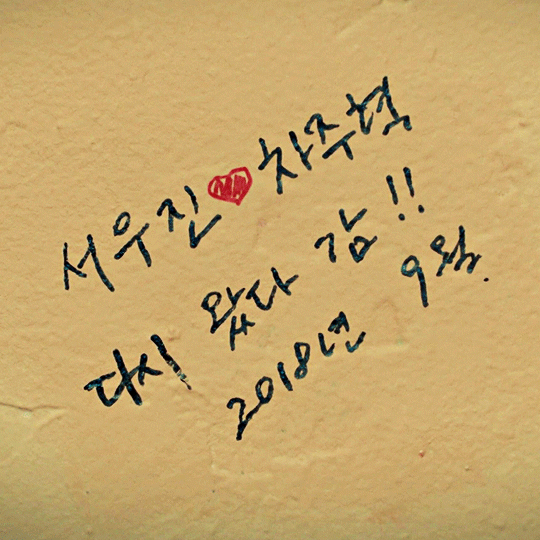 서우진♥차주혁
다시 왔다 감!!
2018년 9월.